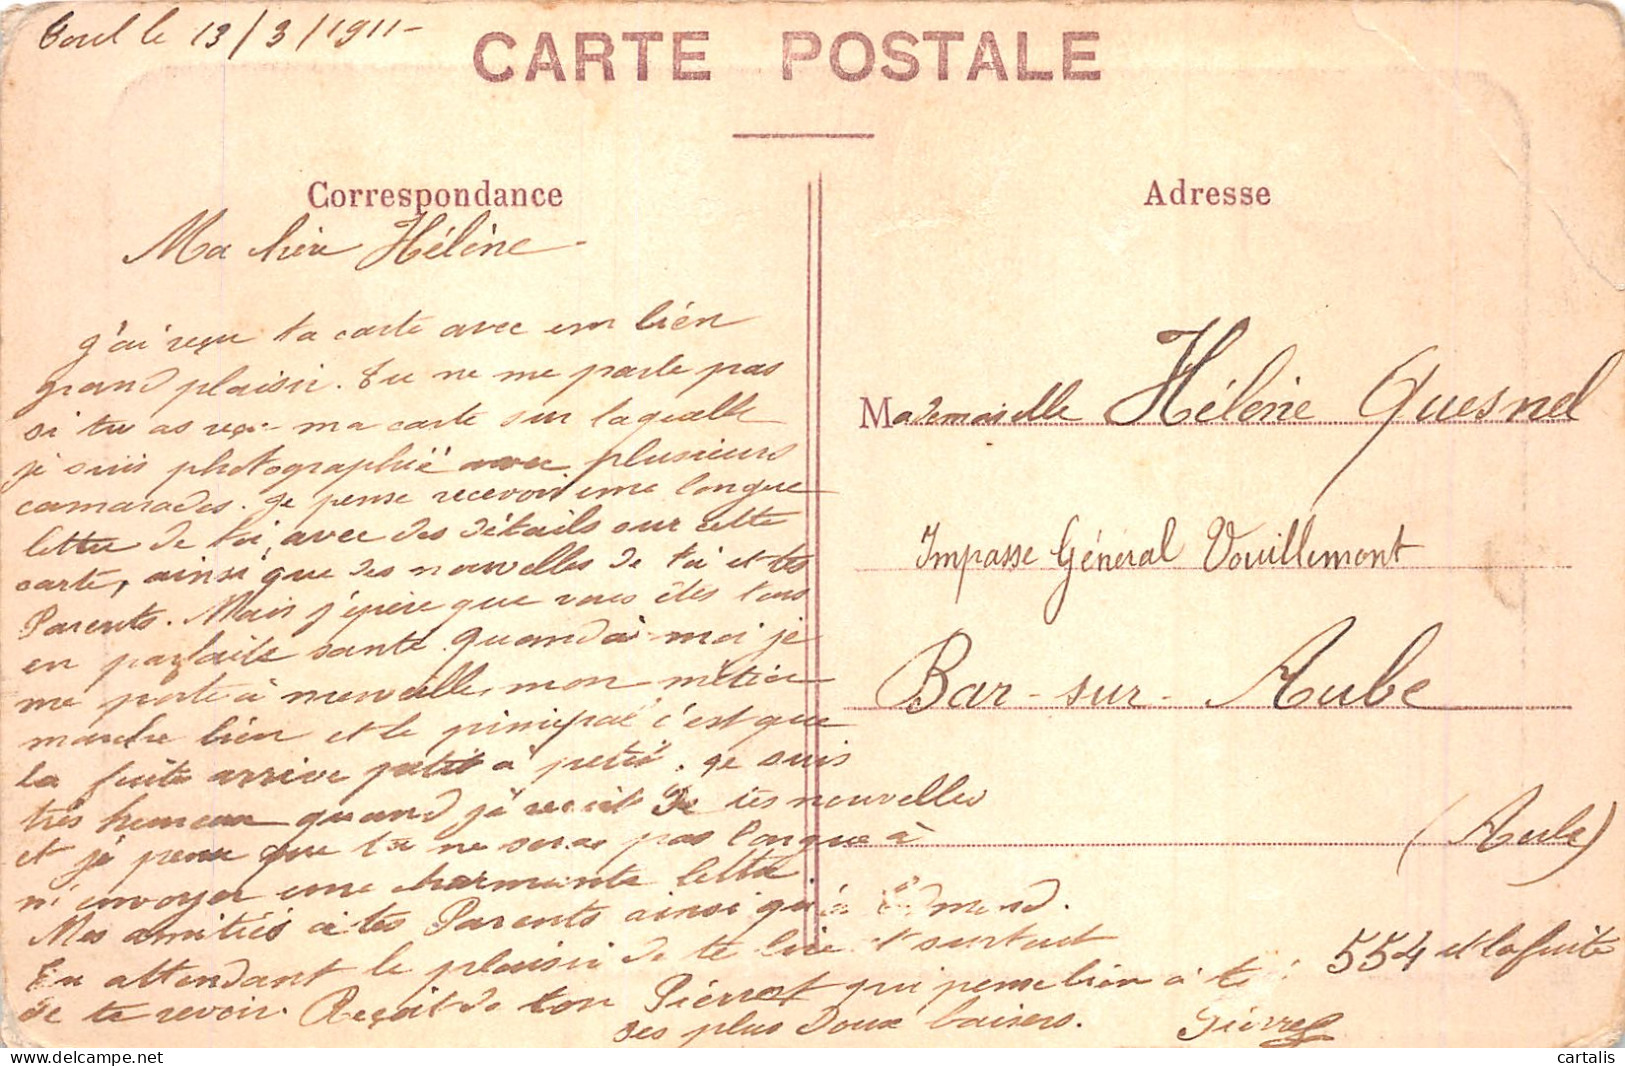 Toul le 13/3/1911-
CARTE POSTALE
Correspondance
Ma chère Hélène -
j'ai reçu ta carte avec un bien
grand plaisir. Tu ne me parle pas
si tu as reçu ma carte sur laquelle
je suis photographié avec plusieurs
camarades. Je pense recevoir une longue
lettre de toi, avec des détails sur cette
carte, ainsi que des nouvelles de toi et tes
Parents. Mais j'éspère que vous êtes tous
en parfaite santé. quand à moi je
me porte à merveille, mon métier
marche bien et le prinicpal c'est que
la fuite arrive petit à petit. Je suis
très heureux quand je reçoit de tes nouvelles
et je pense que tu ne seras pas longue à
m'envoyer une charmante lettre.
Mes amitiés à tes Parents ainsi qu'à Edmond.
En attendant le plaisir de te lire et surtout
de te revoir. Reçoit de ton Piérrot qui pense bien à toi
ses plus doux baisers. Piérre
Adresse
Mademoiselle Hélène Quesnel
Impasse Général Vouillemont
Bar-sur-Aube
(Aube)
554 et la fuite
cartalis